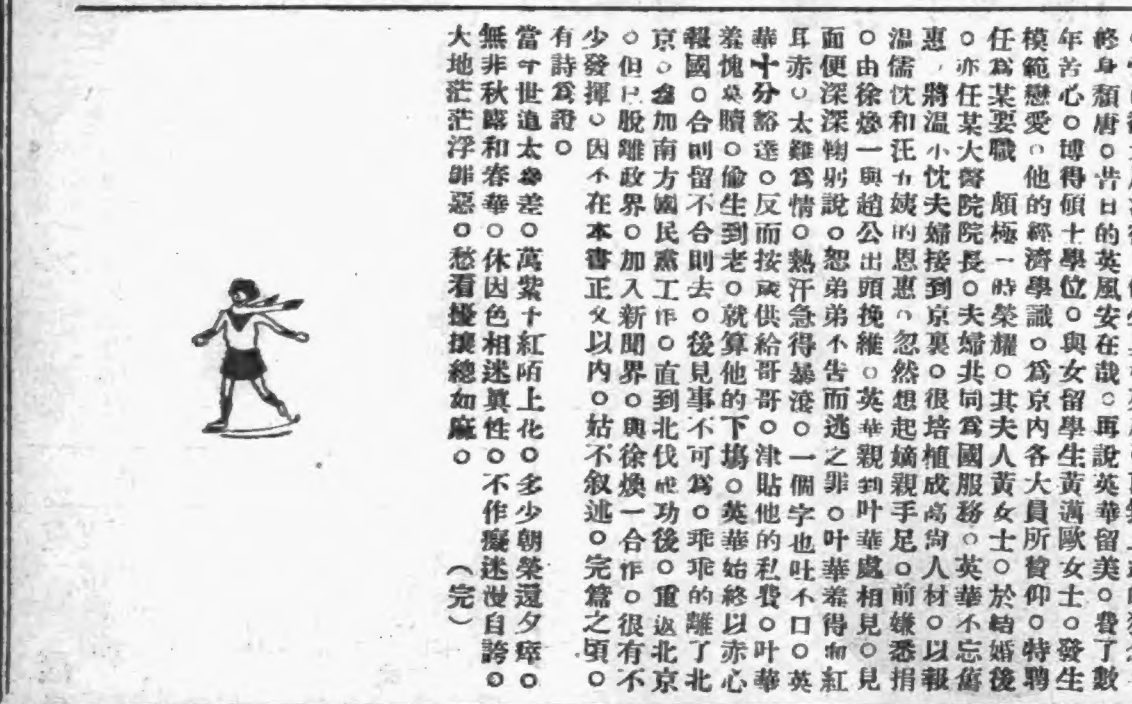 修身頹唐。昔日的英風安在哉。再說英華留美。費了數
年苦心。博得碩士學位。與女留學生黃邁歐女士。發生
模範戀愛。他的經濟學識。爲京內各大員所贊仰。特聘
任爲某要職 頗極一時榮耀。其夫人黃女士。於結婚後
。亦任某大醫院院長。夫婦共同爲國服務。英華不忘舊
惠，將溫小忱夫婦接到京裏。很培植成高尙人材。以報
溫儒忱和汪姨的恩惠。忽然想起嫡親手足。前嫌悉捐
。由徐煥一與趙公出頭挽維。英華親到叶華處相見。見
面便深深鞠躬說。恕弟弟不告而逃之罪。叶華羞得面紅
耳赤。太難爲情。熱汗急得暴滾。一個字也吐不口。英
華十分豁達。反而按歲供給哥哥。津貼他的私費。叶華
羞愧莫贖。偸生到老。就算他的下塲。英華始終以赤心
報國。合則留不合則去。後見事不可爲。乖乖的離了北
京。參加南方國民黨工作。直到北伐成功後。重返北京
。但已脫離政界。加入新聞界。與徐煥一合作。很有不
少發揮。因不在本書正文以內。姑不叙述。完篇之頃。
有詩爲證。
當今世道太參差。萬紫千紅陌上花。多少朝榮還夕瘁。
無非秋露和春華。休因色相迷眞性。不作癡迷漫自誇。
大地茫茫浮罪惡。愁看擾攘總如麻。 （完）